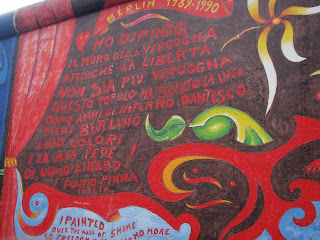 BERLIN 1989-1990
HO DIPINTO
IL MURO DELLA VERGOGNA
AFFINCHÈ LA LIBERTÀ
NON SIA PIÙ VERGOGNA
QUESTO POPOLO HA SCELTO LA LUCE
DOPO ANNI DI INFERNO DANTESCO.
TIENI BERLINO
I MIEI COLORI
E LA MIA FEDE
DI UOMO LIBERO!
FULVIO PINNA
I PAINTED
OVER THE WALL OF SHAME
SO FREEDOM NO MORE